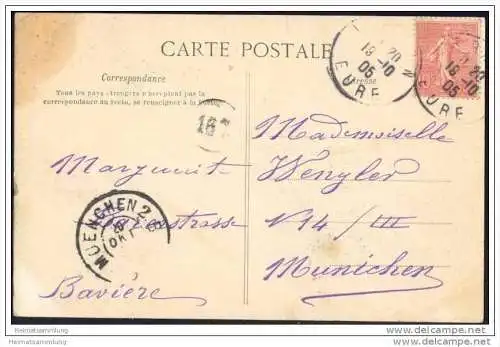 CARTE POSTALE
Correspondance
Tous les pays étrangers n'acceptent pas la
correspondance au recto, se renseigner à la Poste
Adresse
20
19-10
05
EURE
20
19-10
05
EURE
Mademoiselle
Marguerit Wengler
strasse N 14/III
Munichen
Bavière
MUENCHEN 2
OKT
Heimatsammlung
Heimatsammlung.de